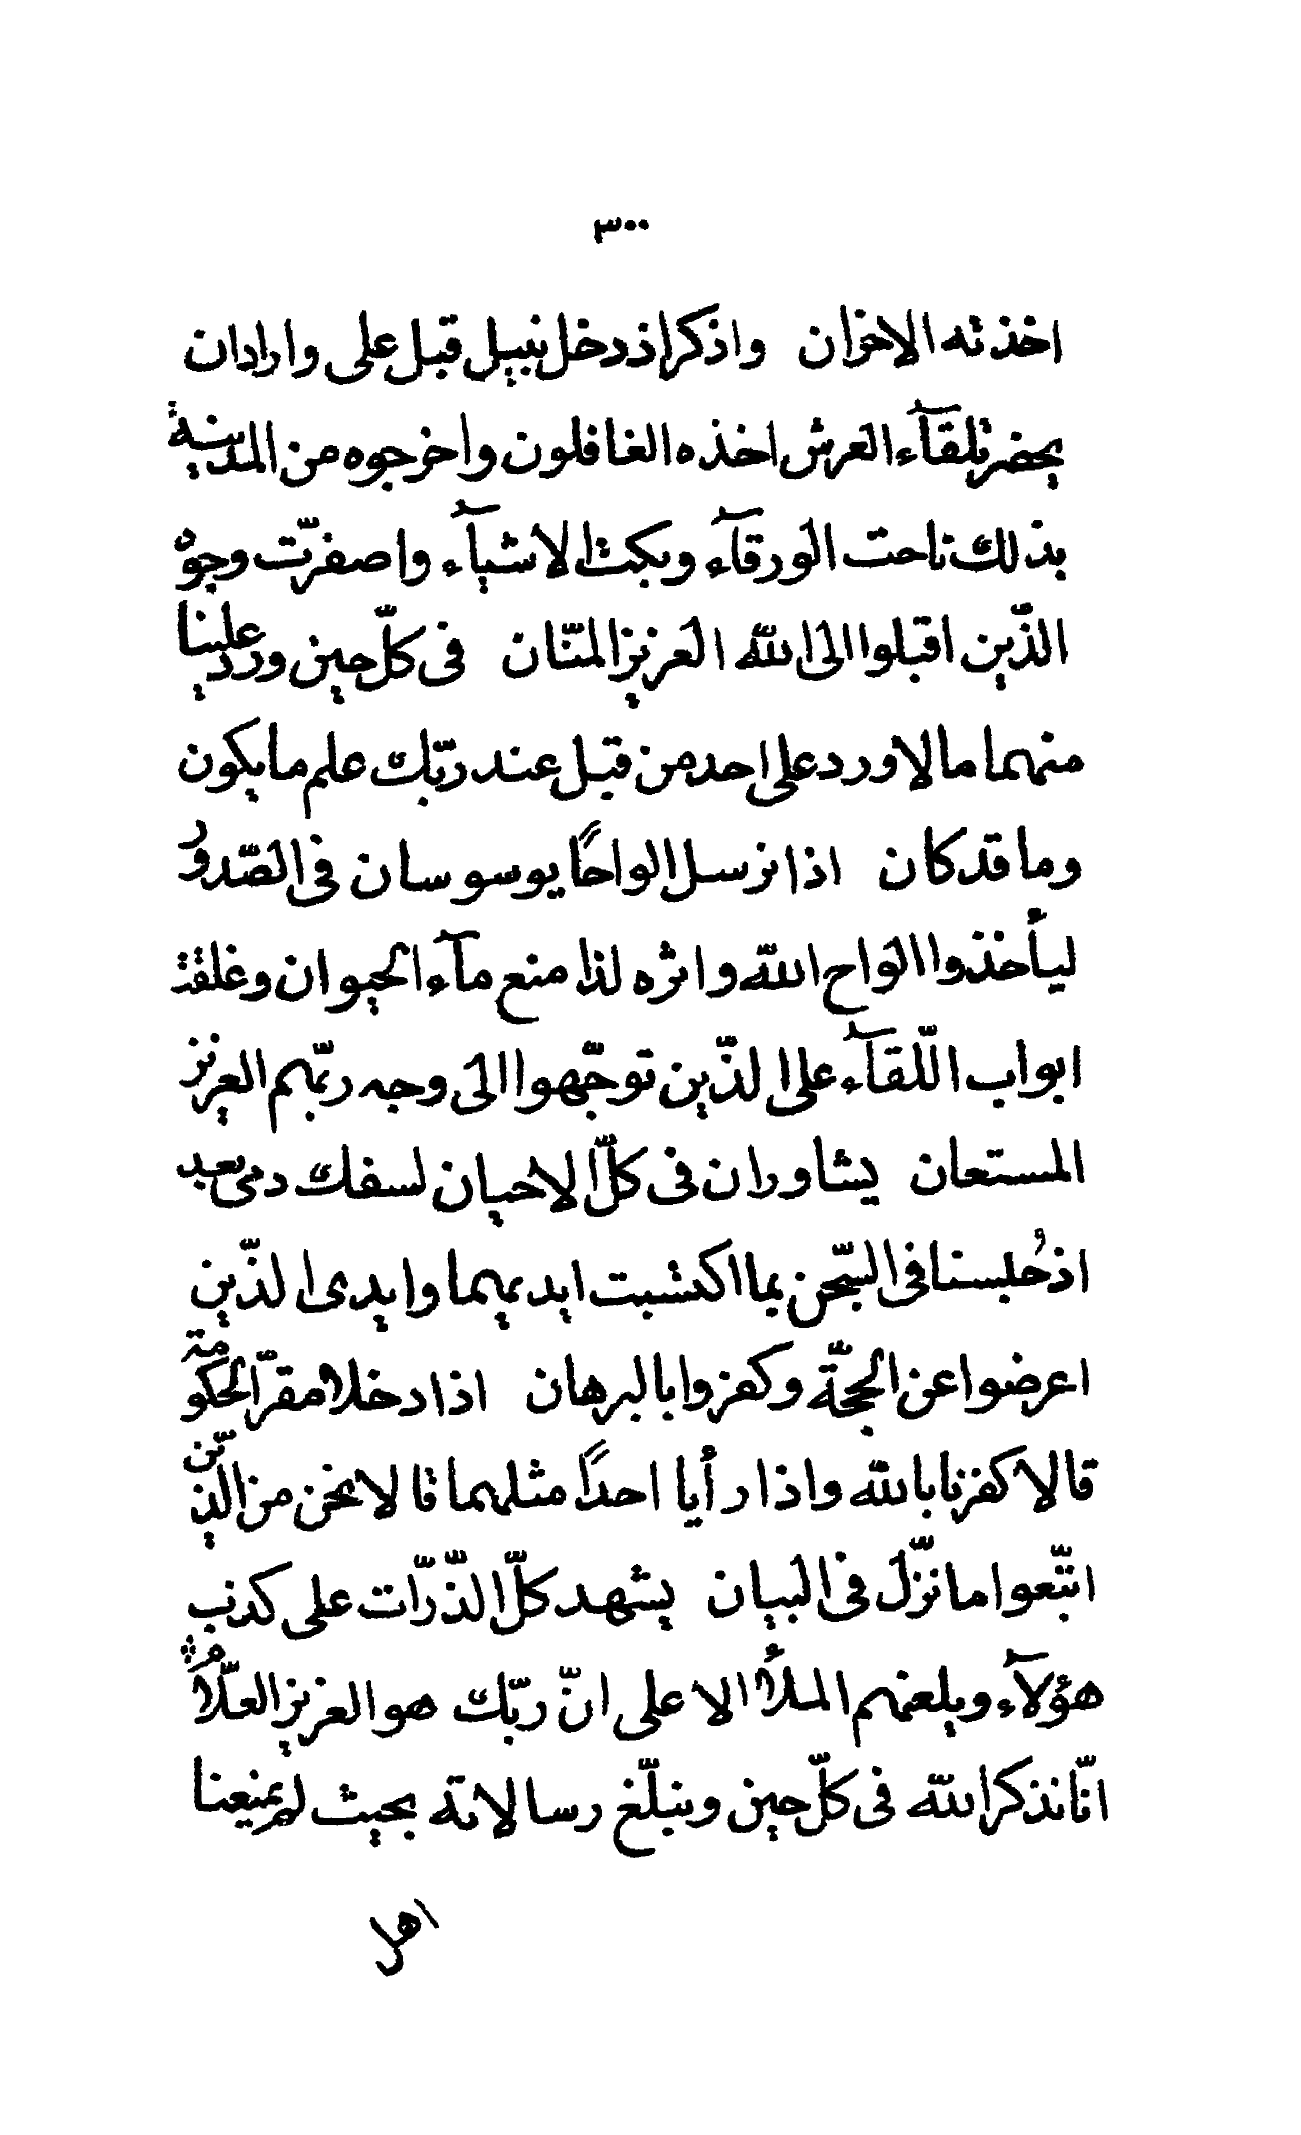 ٣٠٠
اخذته الاحزان واذكر اذ دخل نبيل قبل على واراد ان
يحضر تلقآء العرش اخذه الغافلون واخرجوه من المدينة
بذلك ناحت الورقآء وبكت الاشيآء واصفرّت وجوه
الذّين اقبلوا الى الله العزيز المنّان فى كلّ حين ورد علينا
منهما ما لا ورد على احد من قبل عند ربّك علم ما يكون
وما قد كان اذا نرسل الواحًا يوسوسان فى الصّدور
ليأخذوا الواح الله واثره لذا منع مآء الحيوان وغلقت
ابواب اللّقآء على الذّين توجّهوا الى وجه ربّهم العزيز
المستعان يشاوران فى كلّ الاحيان لسفك دمى بعد
اذ حُبسنا فى السّجن بما اكتسبت ايديهما وايدى الذّين
اعرضوا عن الحجّة وكفروا بالبرهان اذا دخلا مقرّ الحكومة
قالا كفرنا بالله واذا رأيا احدًا مثلهما قالا نحن من الذّين
اتّبعوا ما نزّل فى البيان يشهد كلّ الذّرّات على كذب
هؤلآء ويلعنهم الملأ الاعلى انّ ربّك هو العزيز العلّام
انّا نذكر الله فى كلّ حين ونبلّغ رسالاته بحيث لم يمنعنا
اهل